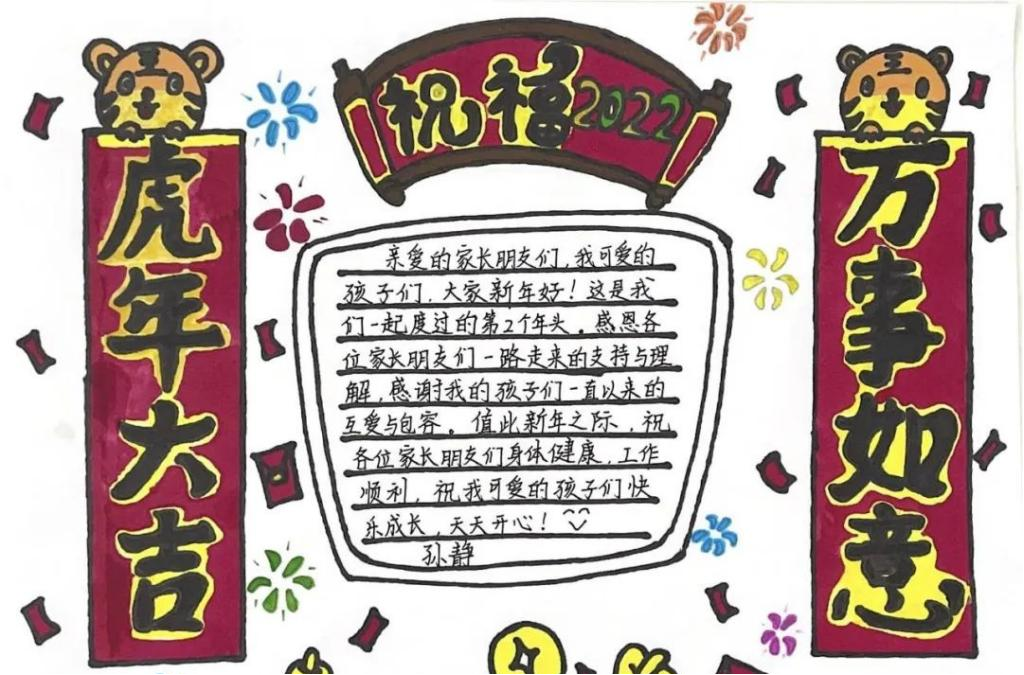 祝福2022
虎年大吉
万事如意
亲爱的家长朋友们,我可爱的
孩子们,大家新年好!这是我
们一起度过的第2个年头。感恩各
位家长朋友们一路走来的支持与理
解,感谢我的孩子们一直以来的
互爱与包容。值此新年之际,祝
各位家长朋友们身体健康,工作
顺利,祝我可爱的孩子们快
乐成长,天天开心!
孙静